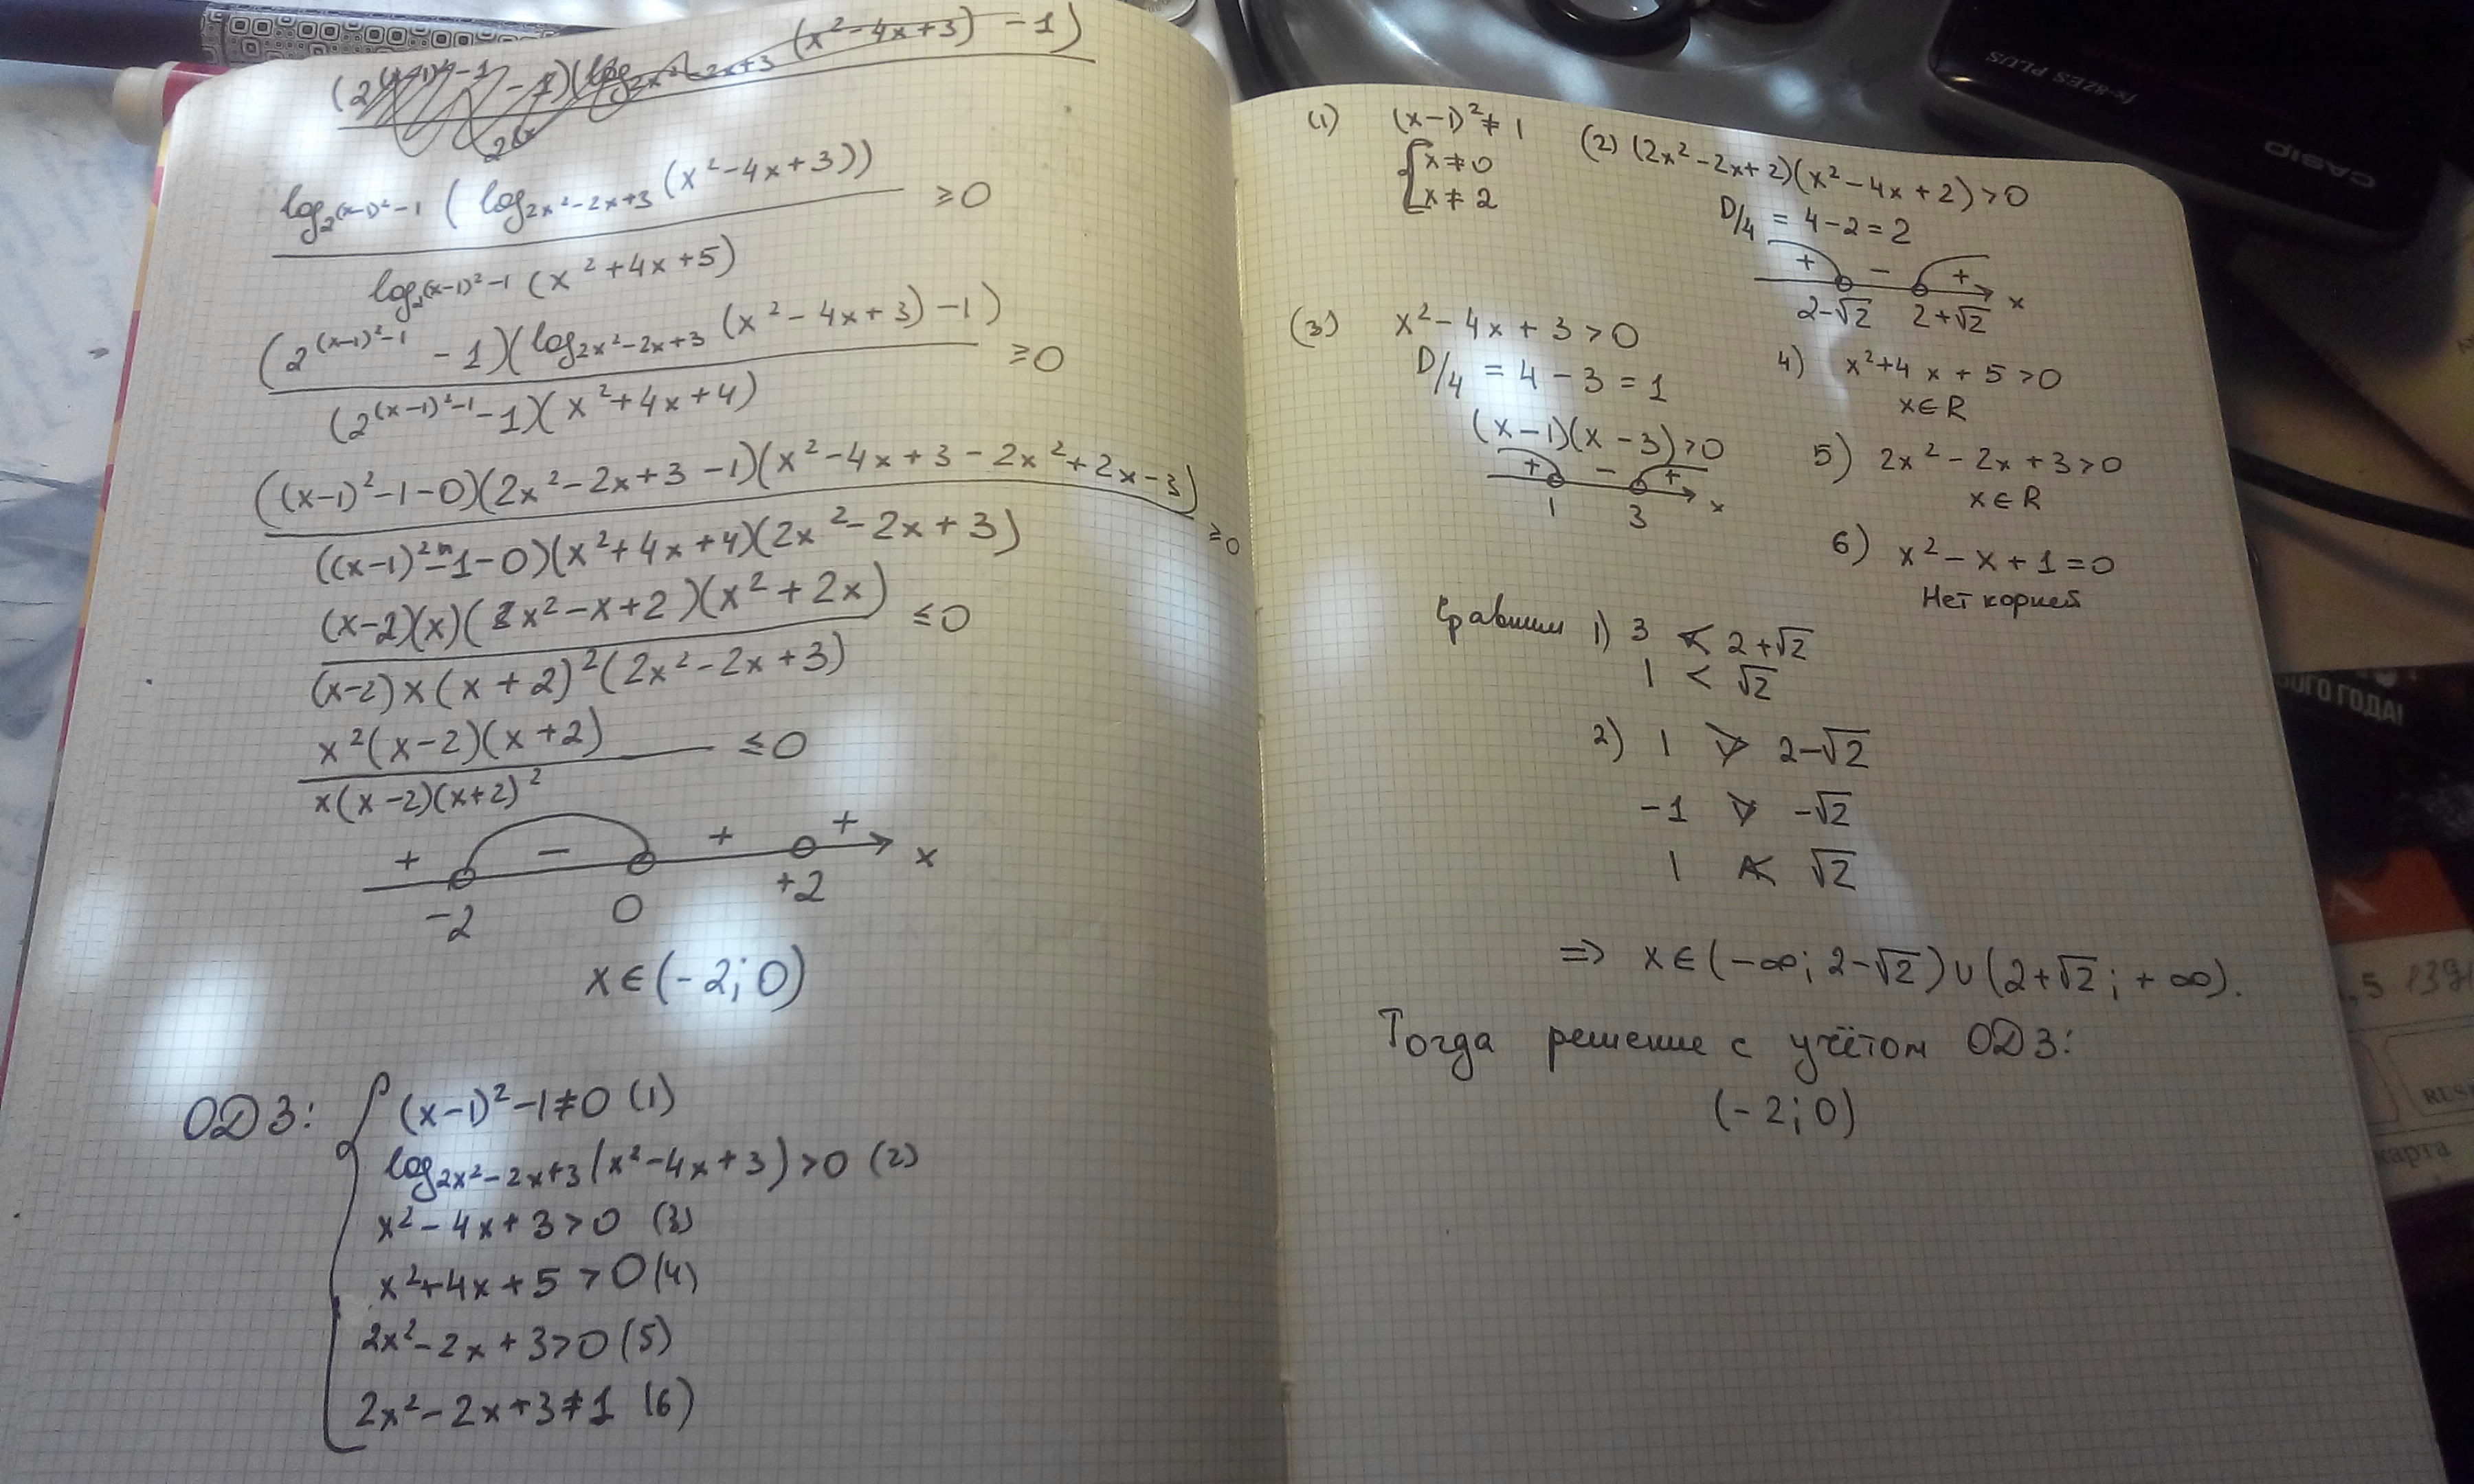 (2^((x-1)²-1) - 1)(log_(2x²-2x+3) (x²-4x+3) - 1)
log_(2^(x-1)²-1) (log_(2x²-2x+3) (x²-4x+3)) ≥0
log_(2^(x-1)²-1) (x²+4x+5)
(2^((x-1)²-1) - 1)(log_(2x²-2x+3) (x²-4x+3) -1) ≥0
(2^((x-1)²-1) -1)(x²+4x+4)
((x-1)²-1-0)(2x²-2x+3-1)(x²-4x+3-2x²+2x-3) ≥0
((x-1)²-1-0)(x²+4x+4)(2x²-2x+3)
(x-2)(x)(2x²-x+2)(x²+2x) ≤0
(x-2)x(x+2)²(2x²-2x+3)
x²(x-2)(x+2) ≤0
x(x-2)(x+2)²
+ - + + x
-2 0 +2
x∈(-2;0)
ОДЗ: (x-1)²-1≠0 (1)
log_(2x²-2x+3) (x²-4x+3)>0 (2)
x²-4x+3>0 (3)
x²+4x+5>0 (4)
2x²-2x+3>0 (5)
2x²-2x+3≠1 (6)
(1) (x-1)²≠1
x≠0
x≠2
(2) (2x²-2x+2)(x²-4x+2)>0
D/4 = 4-2=2
+ - + x
2-√2 2+√2
(3) x²-4x+3>0
D/4 = 4-3=1
(x-1)(x-3)>0
+ - + x
1 3
4) x²+4x+5>0
x∈R
5) 2x²-2x+3>0
x∈R
6) x²-x+1=0
Нет корней
Сравним 1) 3 < 2+√2
1 < √2
2) 1 > 2-√2
-1 > -√2
1 < √2
=> x∈(-∞; 2-√2)∪(2+√2; +∞).
Тогда решение с учётом ОДЗ:
(-2;0)
CASIO
fx-82ES PLUS
ОГО ГОДА!
А
,5
RUS
карта